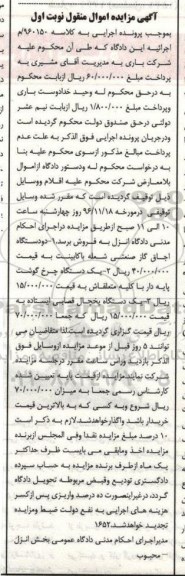 آگهی مزایده اموال منقول نوبت اول
بموجب پرونده اجرایی به کلاسه ۹۶۰۱۵۰/م
اجرائیه این دادگاه که طی آن محکوم علیه
شرکت باری به مدیریت آقای مشیری به
پرداخت مبلغ ۶۰/۰۰۰/۰۰۰ ریال ازبابت محکوم
به درحق محکوم له وحید خدادوست باری
وپرداخت مبلغ ۱/۸۰۰/۰۰۰ ریال ازبابت نیم عشر
دولتی درحق صندوق دولت محکوم گردیده است
ودرجریان پرونده اجرایی فوق الذکر به علت عدم
پرداخت مبالغ مذکور ازسوی محکوم علیه بنا
به درخواست محکوم له ودستور دادگاه ازاموال
بلامعارض شرکت محکوم علیه اقلام ووسایل
ذیل توقیف گردیده است که مقرر شده وسایل
توقیفی درمورخه ۹۶/۱۱/۱۸ روز چهارشنبه ساعت
۱۰ الی ۱۱ صبح ازطریق مزایده دراجرای احکام
مدنی دادگاه انزل به فروش برسد.۱-دودستگاه
اجاق گاز صنعتی شعله باکابینت به قیمت
۴۰/۰۰۰/۰۰۰ ریال ۲-یک دستگاه چرخ گوشت
پایه دار با کلیه متعلقاتش به قیمت ۱۵/۰۰۰/۰۰۰
ریال ۳-یک دستگاه یخچال قصابی ایستاده به
قیمت ۱۵/۰۰۰/۰۰۰ ریال که جمعا ۷۰/۰۰۰/۰۰۰
ریال قیمت گزاری گردیده است.لذا متقاضیان می
توانند ۵ روز قبل از موعد مزایده ازوسایل فوق
الذکر بازدید وراس ساعت مقرر درجلسه مزایده
شرکت نمایند.مزایده ازقیمت پایه تعیین شده
کارشناس رسمی جمعا به میزان ۷۰/۰۰۰/۰۰۰
ریال شروع وبه کسی که به بالاترین قیمت
خریدار باشد واگذارخواهدشد.لازم به ذکر است
۱۰ درصد مبلغ مزایده نقدا وفی المجلس ازبرنده
مزایده اخذ ومابقی می بایست ظرف حداکثر
یک ماه ازطرف برنده مزایده به حساب سپرده
دادگستری تودیع وقبض مربوطه تحویل دادگاه
گردد.درغیراینصورت ده درصد واریزی پس ازکسر
هزینه های اجرایی به نفع دولت ضبط ومزایده
تجدید خواهدشد.۱۶۵۲
مدیراجرای احکام مدنی دادگاه عمومی بخش انزل
- محبوب